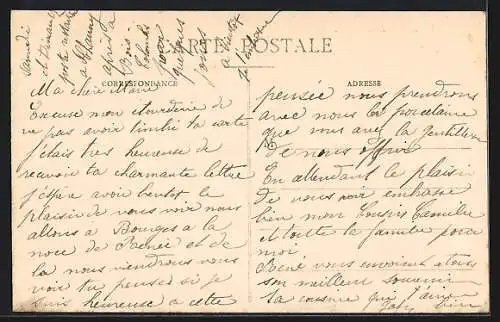 CARTE POSTALE
CORRESPONDANCE
ADRESSE
Samedi
et dimanche
poste restante
a
après la
Bois
pour
quelques
jours
a bientot

Ma chère Marie
Excuse mon etourderie de
ne pas avoir timbré ta carte
j'étais tres heureuse de
recevoir ta charmante lettre
j'espere avoir bentot le
plaisir de vous voir nous
allons a Bourges a la
noce de Renée et de
la nous viendrons vous
voir tu penses si je
suis heureuse a cette
pensée nous prendrons
avec nous la porcelaine
que vous avez la gentillesse
de nous offrir
En attendant le plaisir
de vous voir embrasse
bien mon Cousin Camille
et toute la famille pour
moi
René vous envoient a tous
son meilleur souvenir
ta cousine qui t'aime
bien